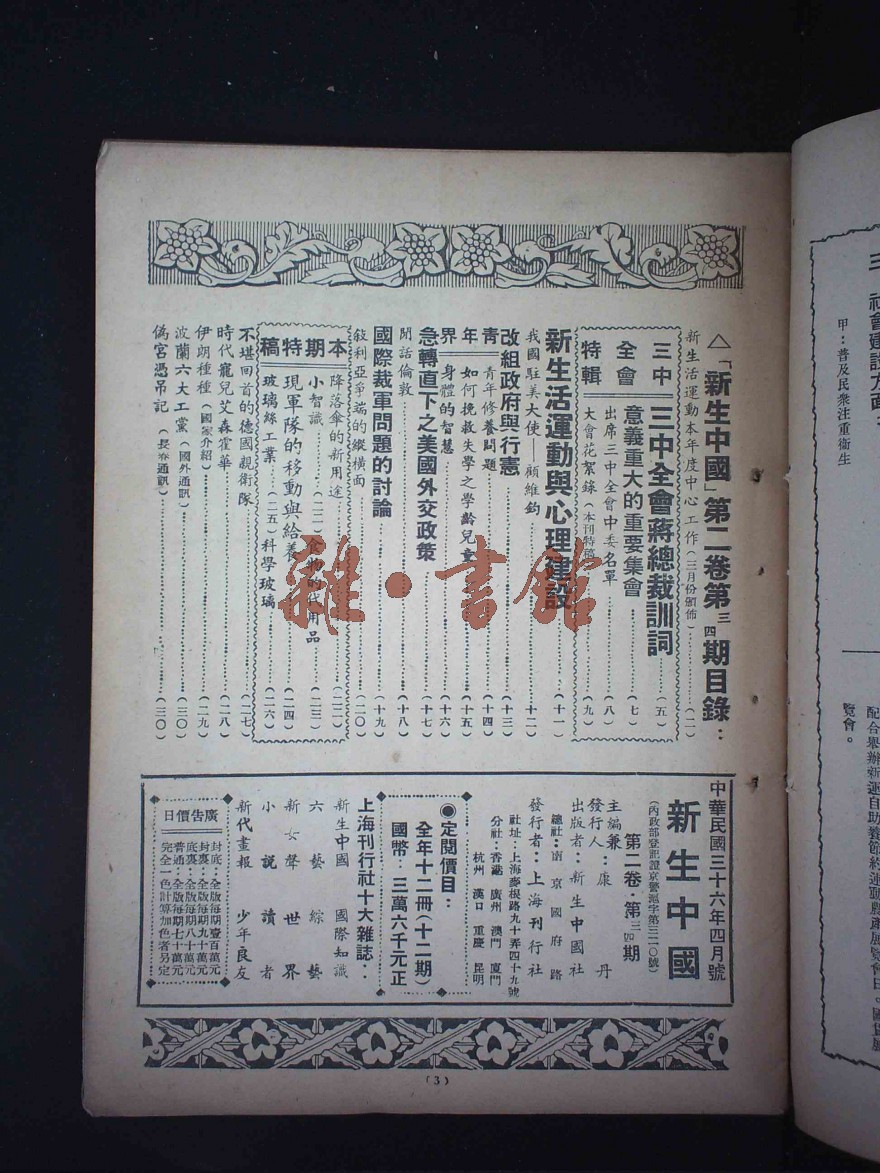 △「新生中國」第二卷第三四期目錄：
新生活運動本年度中心工作(三月份頒佈)(二)
三中全會特輯
三中全會蔣總裁訓詞(五)
意義重大的重要集會(七)
出席三中全會中委名單(八)
大會花絮錄(本刊特稿)(九)
新生活運動與心理建設(十一)
我國駐美大使——顧維鈞(十二)
改組政府與行憲(十三)
青年界
青年修養問題(十四)
如何挽救失學之學齡兒童(十五)
身體的智慧(十六)
急轉直下之美國外交政策(十七)
閒話倫敦(十八)
國際裁軍問題的討論(十九)
敍利亞爭端的縱橫面(二〇)
本期特稿
降落傘的新用途(二二)
小智識(二二)食物的代用品(二三)
現軍隊的移動與給養(二四)
玻璃絲工業(二五)科學玻璃(二六)
不堪回首的德國親衛隊(二七)
時代寵兒艾森霍華(二八)
伊朗種種(國家介紹)(二九)
波蘭六大工黨(國外通訊)(三〇)
偽宮憑吊記(長春通訊)(三〇)
中華民國三十六年四月號
新生中國
(內政部登記證京警滬字第三二〇號)
第二卷·第三四期
主編兼發行人：康丹
出版者：新生中國社
總社：南京國府路
發行者：上海刊行社
社址：上海麥根路九十弄四十九號
分社：香港 廣州 澳門 廈門
杭州 漢口 重慶 昆明
◉定閱價目：
全年十二冊(十二期)
國幣：三萬六千元正
上海刊行社十大雜誌：
新生中國 國際知識
六藝 綜藝
新女聲 世界
小說 讀者
新代畫報 少年良友
廣告價目
封底：全版每期壹百萬元
封裏：全版每期九十萬元
底裏：全版每期八十萬元
普通：全版每期七十萬元
完全一色計算加色者另定
(3)
三、社會建設方面：
甲：普及民衆注重衞生
配合舉辦新運自助養節約運動縣產展覽會日。國貨展
覽會。
雜·書館